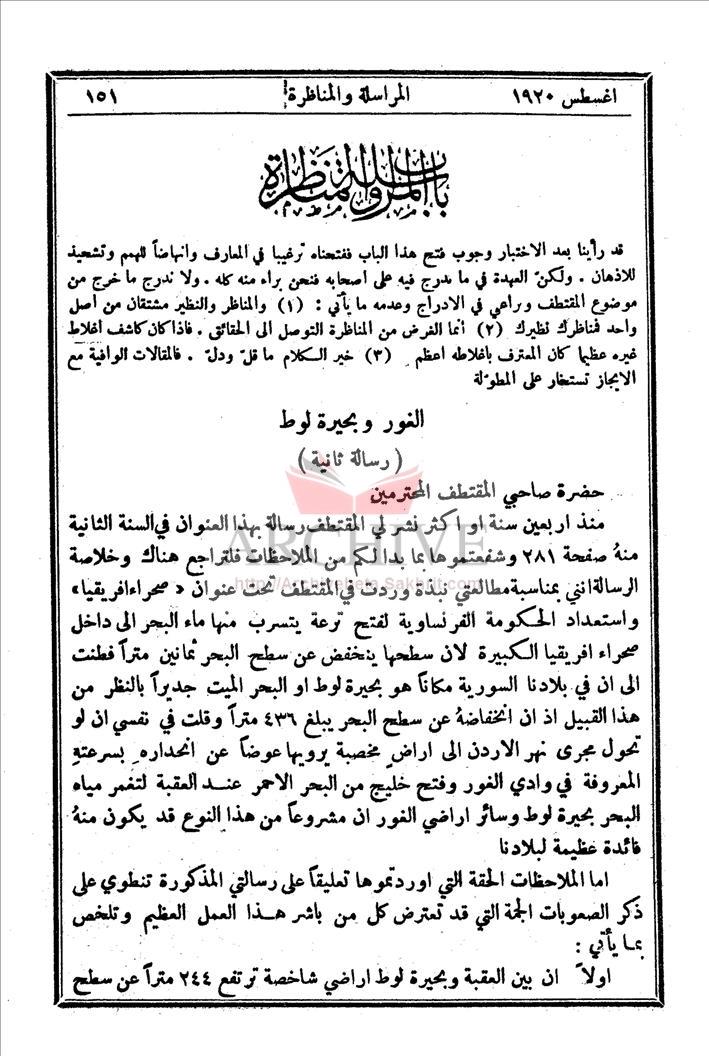 اغسطس ١٩٢٠ المراسلة والمناظرة ١٥١
باب المراسلة والمناظرة
قد رأينا بعد الاختبار وجوب فتح هذا الباب ففتحناه ترغيبا في المعارف وانهاضاً للهمم وتشحيذ
للاذهان . ولكنّ العهدة في ما يدرج فيه على اصحابه فنحن براء منه كله . ولا ندرج ما خرج من
موضوع المقتطف ونراعي في الادراج وعدمه ما يأتي : (١) والمناظر والنظير مشتقان من اصل
واحد فمناظرك نظيرك (٢) انما الغرض من المناظرة التوصل الى الحقائق . فاذا كان كاشف اغلاط
غيره عظيما كان المعترف باغلاطه اعظم (٣) خير الكلام ما قلّ ودلّ . فالمقالات الوافية مع
الايجاز تستخار على المطوّلة
الغور وبحيرة لوط
( رسالة ثانية )
حضرة صاحبي المقتطف المحترمين
منذ اربعين سنة او اكثر نشر لي المقتطف رسالة بهذا العنوان في السنة الثانية
منهُ صفحة ٢٨١ وشفعتموها بما بدا لكم من الملاحظات فلتراجع هناك وخلاصة
الرسالة انني بمناسبة مطالعتي نبذة وردت في المقتطف تحت عنوان « صحراء افريقيا »
واستعداد الحكومة الفرنساوية لفتح ترعة يتسرب منها ماء البحر الى داخل
صحراء افريقيا الكبيرة لان سطحها ينخفض عن سطح البحر ثمانين متراً فطنت
الى ان في بلادنا السورية مكاناً هو بحيرة لوط او البحر الميت جديراً بالنظر من
هذا القبيل اذ ان انخفاضهُ عن سطح البحر يبلغ ٤٣٦ متراً وقلت في نفسي ان لو
تحول مجرى نهر الاردن الى اراض مخصبة يرويها عوضاً عن انحداره بسرعتهِ
المعروفة في وادي الغور وفتح خليج من البحر الاحمر عند العقبة لتغمر مياه
البحر بحيرة لوط وسائر اراضي الغور ان مشروعاً من هذا النوع قد يكون منهُ
فائدة عظيمة لبلادنا
اما الملاحظات الحقة التي اوردتموها تعليقاً على رسالتي المذكورة تنطوي على
ذكر الصعوبات الجمة التي قد تعترض كل من باشر هذا العمل العظيم وتلخص
بما يأتي :
اولاً ان بين العقبة وبحيرة لوط اراضي شاخصة ترتفع ٢٤٤ متراً عن سطح
ARCHIVE
http://Archivebeta.Sakhrit.com